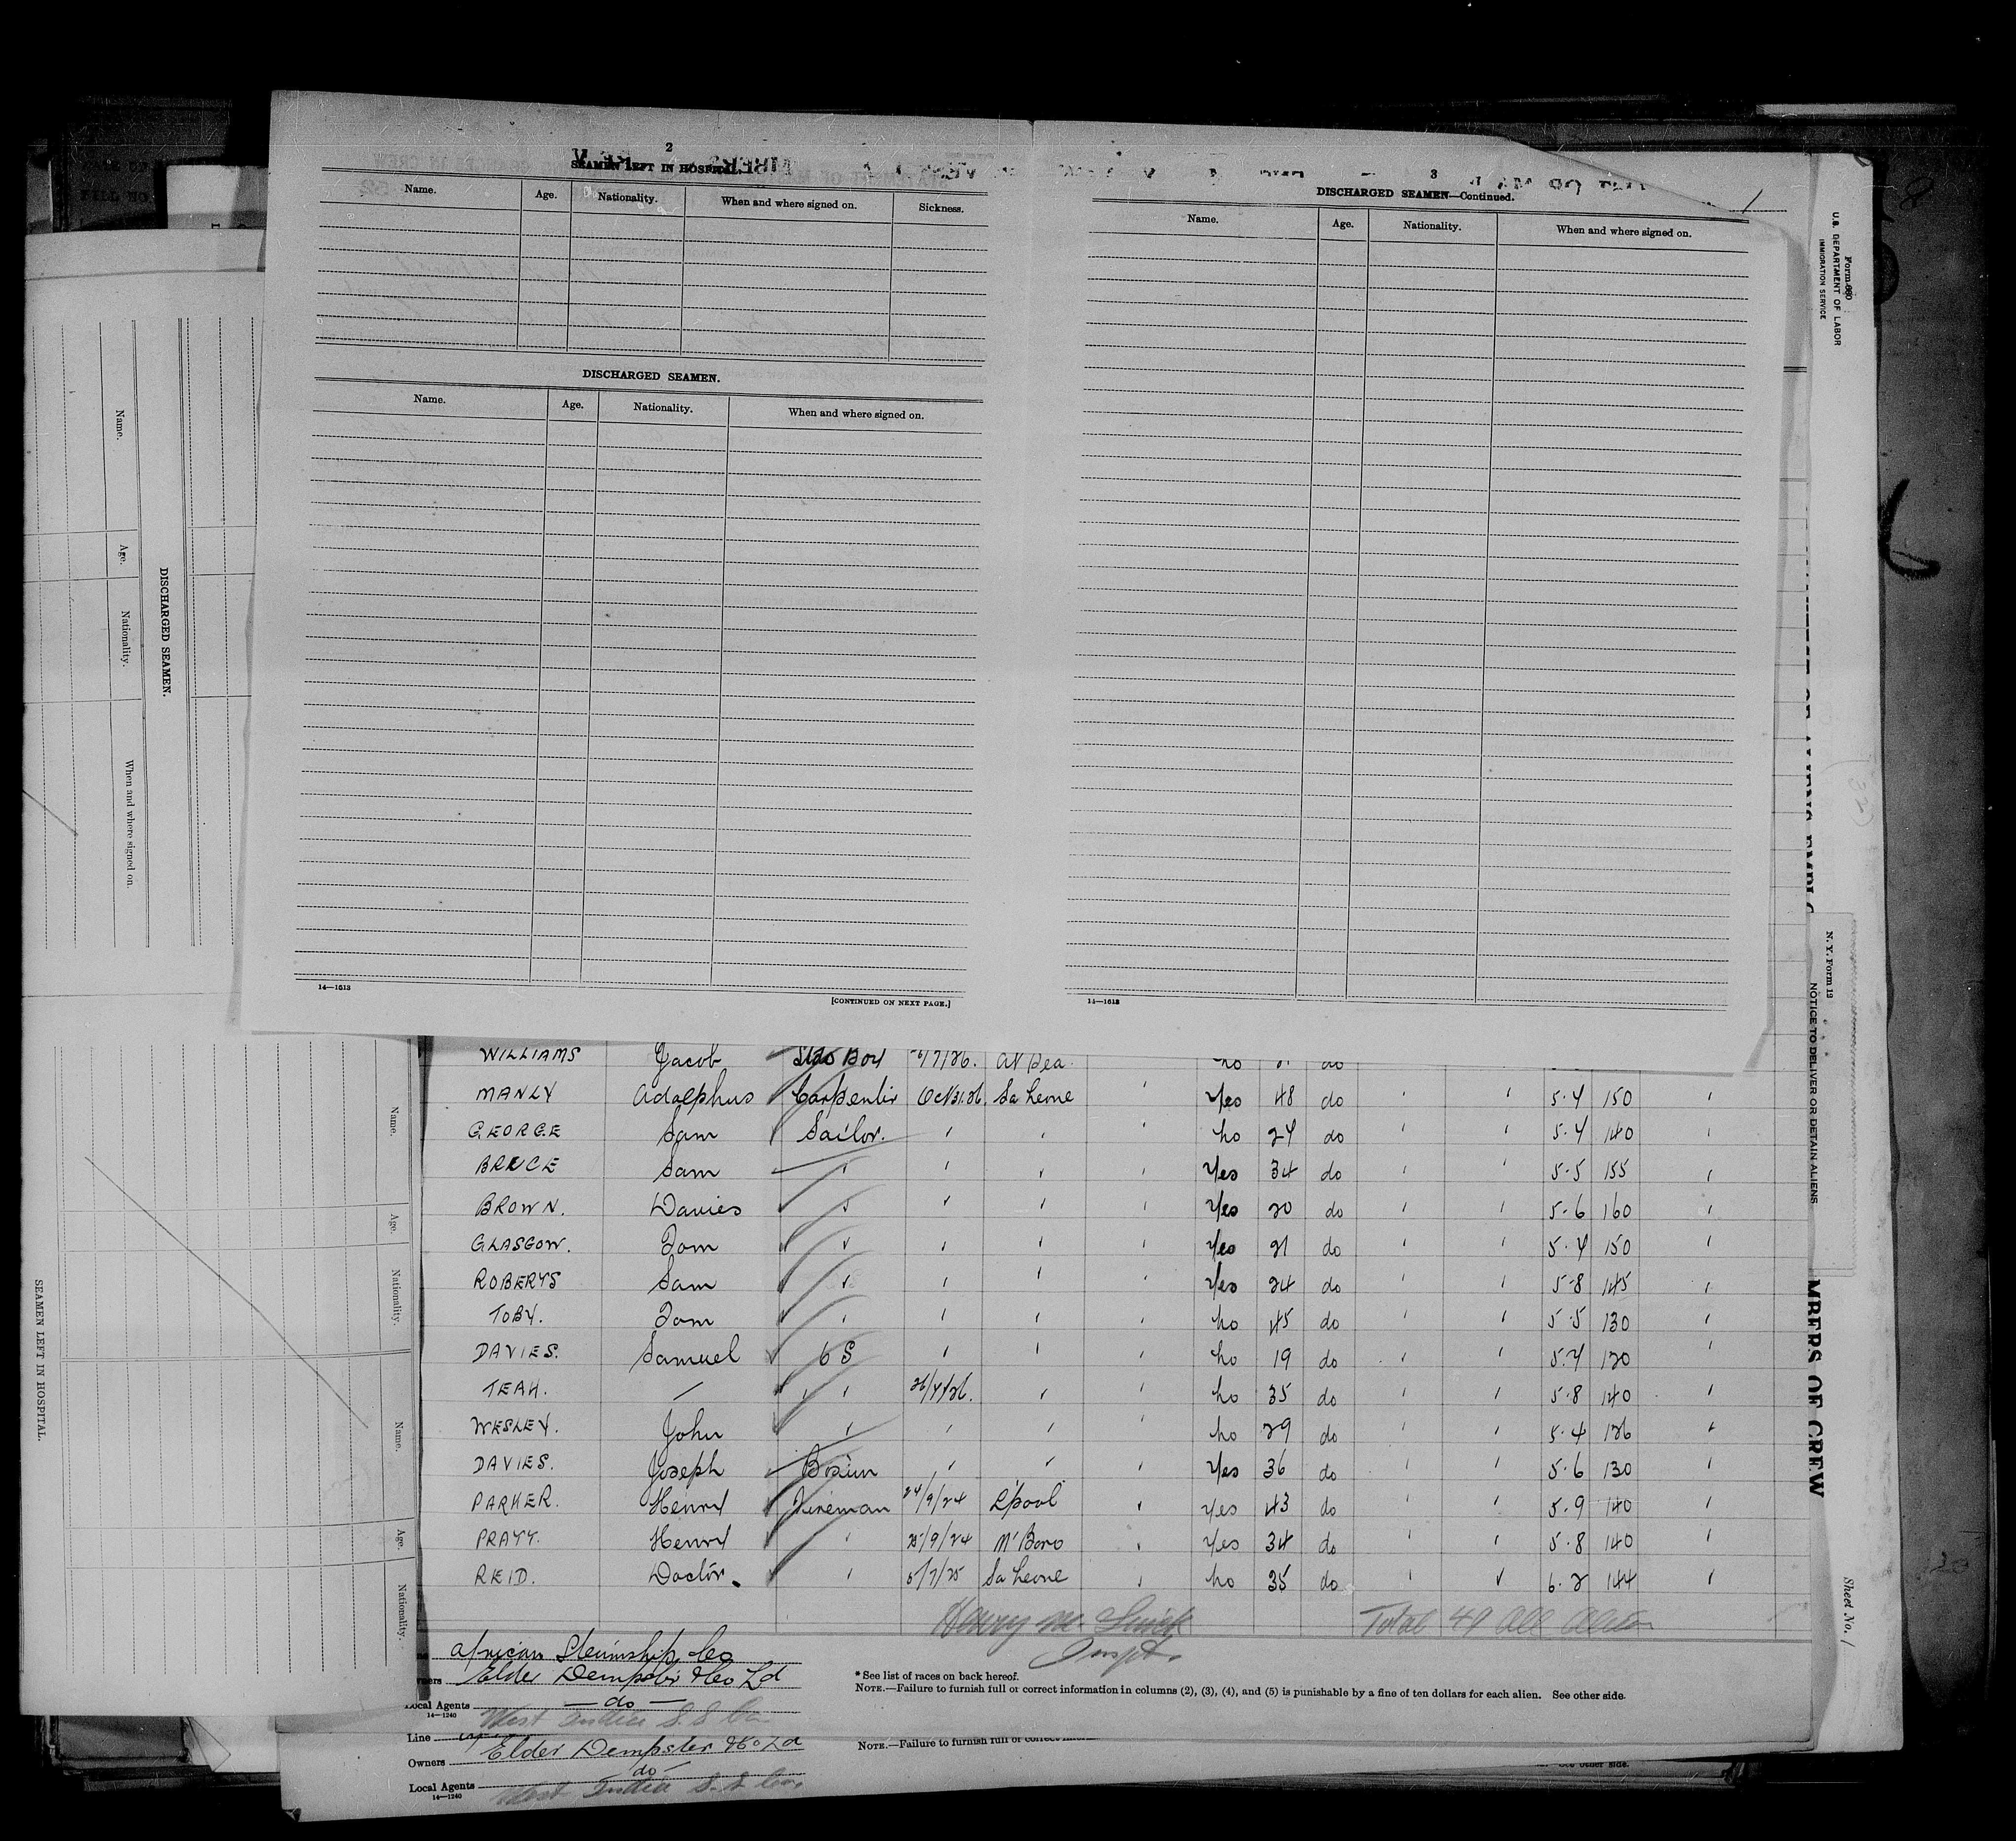 2
SEAMEN LEFT IN HOSPITAL.
Name. Age. Nationality. When and where signed on. Sickness.
DISCHARGED SEAMEN.
Name. Age. Nationality. When and where signed on.
14—1613
[CONTINUED ON NEXT PAGE.]
3
DISCHARGED SEAMEN—Continued.
Name. Age. Nationality. When and where signed on.
14—1613
Form 680
U.S. DEPARTMENT OF LABOR
IMMIGRATION SERVICE
N. Y. Form 12
NOTICE TO DELIVER OR DETAIN ALIENS
MBERS OF CREW
Sheet No. 1
Name.
Age.
Nationality.
When and where signed on.
DISCHARGED SEAMEN.
SEAMEN LEFT IN HOSPITAL.
Name.
Age.
Nationality.
Name.
Age.
Nationality.
WILLIAMS Jacob Boy /7/26. At Sea ho do
MANLY Adolphus Carpenter Oct 31.26. Sa Leone ' Yes 48 do ' ' 5.4 150 '
GEORGE Sam Sailor. ' ' ' ho 24 do ' ' 5.4 140 '
BRUCE Sam ' ' ' ' Yes 34 do ' ' 5.5 155 '
BROWN. Davies ' ' ' ' Yes 20 do ' ' 5.6 160 '
GLASGOW. Tom ' ' ' ' Yes 21 do ' ' 5.4 150 '
ROBERTS Sam ' ' ' ' Yes 24 do ' ' 5.8 145 '
TOBY. Tom ' ' ' ' ho 45 do ' ' 5.5 130 '
DAVIES. Samuel 6 S ' ' ' ho 19 do ' ' 5.4 120 '
TEAH. — ' 26/4/26. ' ' ho 35 do ' ' 5.8 140 '
WESLEY. John ' ' ' ' ho 29 do ' ' 5.4 126 '
DAVIES. Joseph Bosun ' ' ' Yes 36 do ' ' 5.6 130 '
PARKER. Henry Fireman 24/9/24 L'pool ' Yes 43 do ' ' 5.9 140 '
PRATT. Henry ' 25/9/24 M'Boro ' Yes 34 do ' ' 5.8 140 '
REID. Doctor. ' 5/7/25 Sa Leone ' ho 35 do ' ' 6.2 144 '
Henry M. Total 49 All Alien
Inspt.
African Steamship Co
Owners Elder Dempster & Co Ld
Local Agents — do —
14—1240
West India S. S. Co
* See list of races on back hereof.
NOTE.—Failure to furnish full or correct information in columns (2), (3), (4), and (5) is punishable by a fine of ten dollars for each alien. See other side.
Line
Owners Elder Dempster & Co Ld
NOTE.—Failure to furnish full or correct
See other side.
Local Agents do
14—1240
West India S. S. Co.